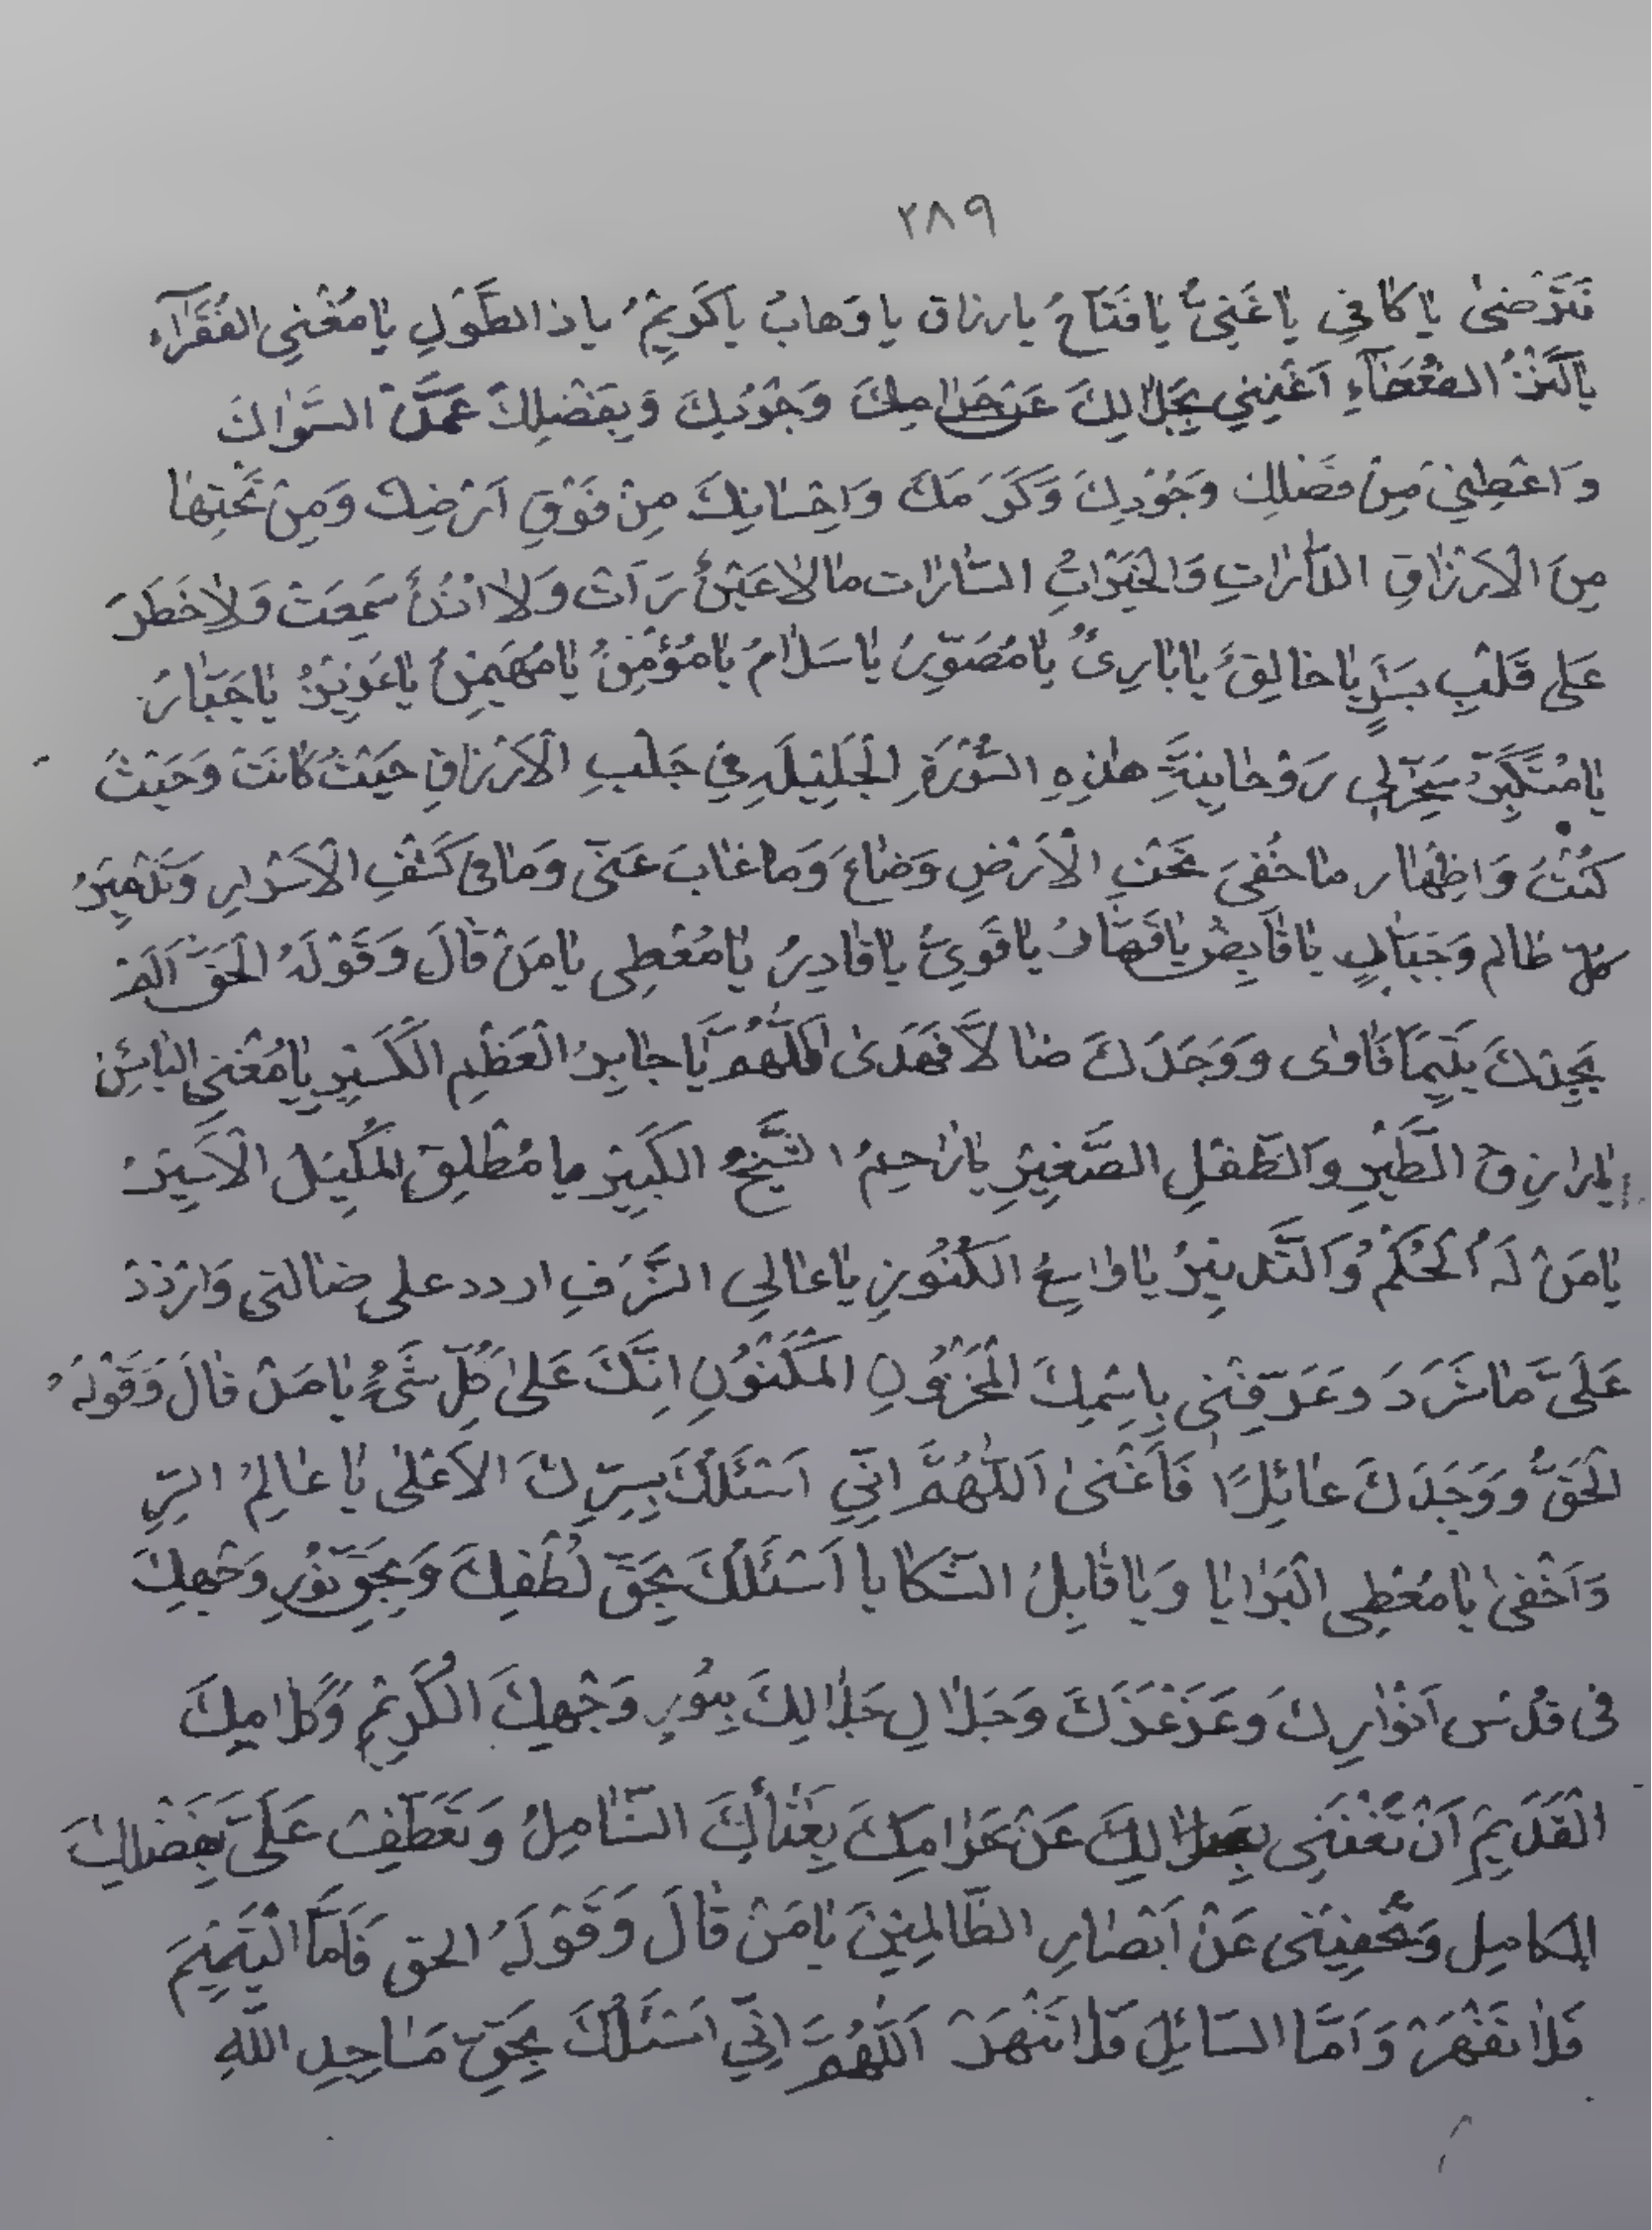 ٢٨٩
فَتَرْضىٰ يا كافِي يا غَنِيُّ يا فَتّاحُ يا رزاق يا وَهابُ يا كَرِيمُ يا ذا الطَّوْلِ يا مُغْنِي الفُقَرٰاءِ
يا كَنْزُ الضُّعَفآءِ اَغْنِنِي بِحَلالِكَ عَنْ حَرٰامِكَ وَجُوْدِكَ وَبِفَضْلِكَ عَمَّنْ سِوٰاكَ
وَاعْطِنِي مِنْ فَضْلِكَ وَجُوْدِكَ وَكَرَمَكَ وَاِحْسٰانِكَ مِنْ فَوْقِ اَرْضِكَ وَمِنْ تَحْتِهٰا
مِنَ الْاَرْزٰاقِ الدّٰارّٰاتِ وَالْخَيْرٰاتِ السّٰارّٰات مٰا لاٰ عَيْنٌ رَاَتْ وَلاٰ اُذُنٌ سَمِعَتْ وَلاٰ خَطَرَ
عَلى قَلْبِ بَشَرٍ يٰا خٰالِقُ يٰا بٰارِئُ يٰا مُصَوِّرُ يٰا سَلاٰمُ يٰا مُؤْمِنُ يٰا مُهَيْمِنُ يٰا عَزِيْزُ يٰا جَبّٰارُ
يٰا مُتَكَبِّرُ سَخِّرْلِي رَوْحٰانِيَّةَ هٰذِهِ السُّوْرَةِ الْجَلِيْلَةِ فِي جَلْبِ الْاَرْزٰاقِ حَيْثُ كٰانَتْ وَحَيْثُ
كُنْتُ وَاِظْهٰار مٰا خُفِيَ تَحْتِ الْاَرْضِ وَضٰاعَ وَمٰا غٰابَ عَنّى وَمٰا فى كَشْفِ الْاَسْرٰارِ وَتَدْمِيْرُ
كلّ ظالم وَجَبّٰارٍ يٰا قٰابِضُ يٰا قَهّٰارُ يٰا قَوِيُّ يٰا قٰادِرُ يٰا مُعْطِى يٰا مَنْ قٰالَ وَقَوْلَهُ الْحَقّ اَلَمْ
يَجِدْكَ يَتِيْمًا فَاٰوى وَوَجَدَكَ ضٰالاًّ فَهَدَىٰ اَللّٰهُمَّ يٰا جٰابِرُ الْعَظْمِ الْكَسِيْرِ يٰا مُغْنِى البٰائِسِ
يٰا رازِقَ الطَّيْرِ وَالطِّفْلِ الصَّغِيْرِ يٰا رٰاحِمُ الشَّيْخِ الكَبِيْرِ يا مُطْلِقَ الْمُكَبَّلِ الْاَسِيْرُ
يٰا مَنْ لَهُ الْحُكْمُ وَالتَّدْبِيْرُ يٰا وٰاسِعُ الكُنُوْزِ يٰا عٰالِي الشَّرَفِ اردد على ضٰالتى وَارْدُدْ
عَلَىَّ مٰا شَرَدَ وعَرِّفْنِى بِاِسْمِكَ الْمَخْزُوْنِ الْمَكْنُوْنِ اِنَّكَ عَلىٰ كُلِّ شَىْءٍ يٰا مَنْ قٰالَ وَقَوْلُهُ
الْحَقُّ وَوَجَدَكَ عٰائِلاً فَاَغْنىٰ اَللّٰهُمَّ اِنِّي اَسْئَلُكَ بِسِرِّكَ الْاَعْلٰى يٰا عٰالِمُ السِّرِّ
وَاَخْفىٰ يٰا مُعْطِى الْبَرٰايٰا وَيٰا قٰابِلُ الشَّكٰايا اَسْئَلُكَ بِحَقِّ لُطْفِكَ وَبِحَقِّ نُوْرِ وَجْهِكَ
فى قُدْس اَنْوٰارِكَ وعَزّ عَزّكَ وَجَلاٰلِ جَلاٰلِكَ بِنُوْرِ وَجْهِكَ الْكَرِيْمِ وَكَلاٰمِكَ
الْقَدِيْمِ اَنْ تُغْنِنِى بِحَلاٰلِكَ عَنْ حَرٰامِكَ بِغِنٰائِكَ الشّٰامِلُ وَتَعَطَّفْ عَلَىَّ بِفَضْلِكَ
الْكامِلِ وَتُخْفِيَنى عَنْ اَبْصٰارِ الظّٰالِمِيْنَ يٰا مَنْ قٰالَ وَقَوْلَهُ الحق فَاَمَّا الْيَتِيْمَ
فَلاٰ تَقْهَرْ وَاَمَّا السّٰائِلَ فَلاٰ تَنْهَرْ اَللّٰهُمَّ اِنِّي اَسْئَلُكَ بِحَقِّ مَسٰاجِدِ اللّٰهِ